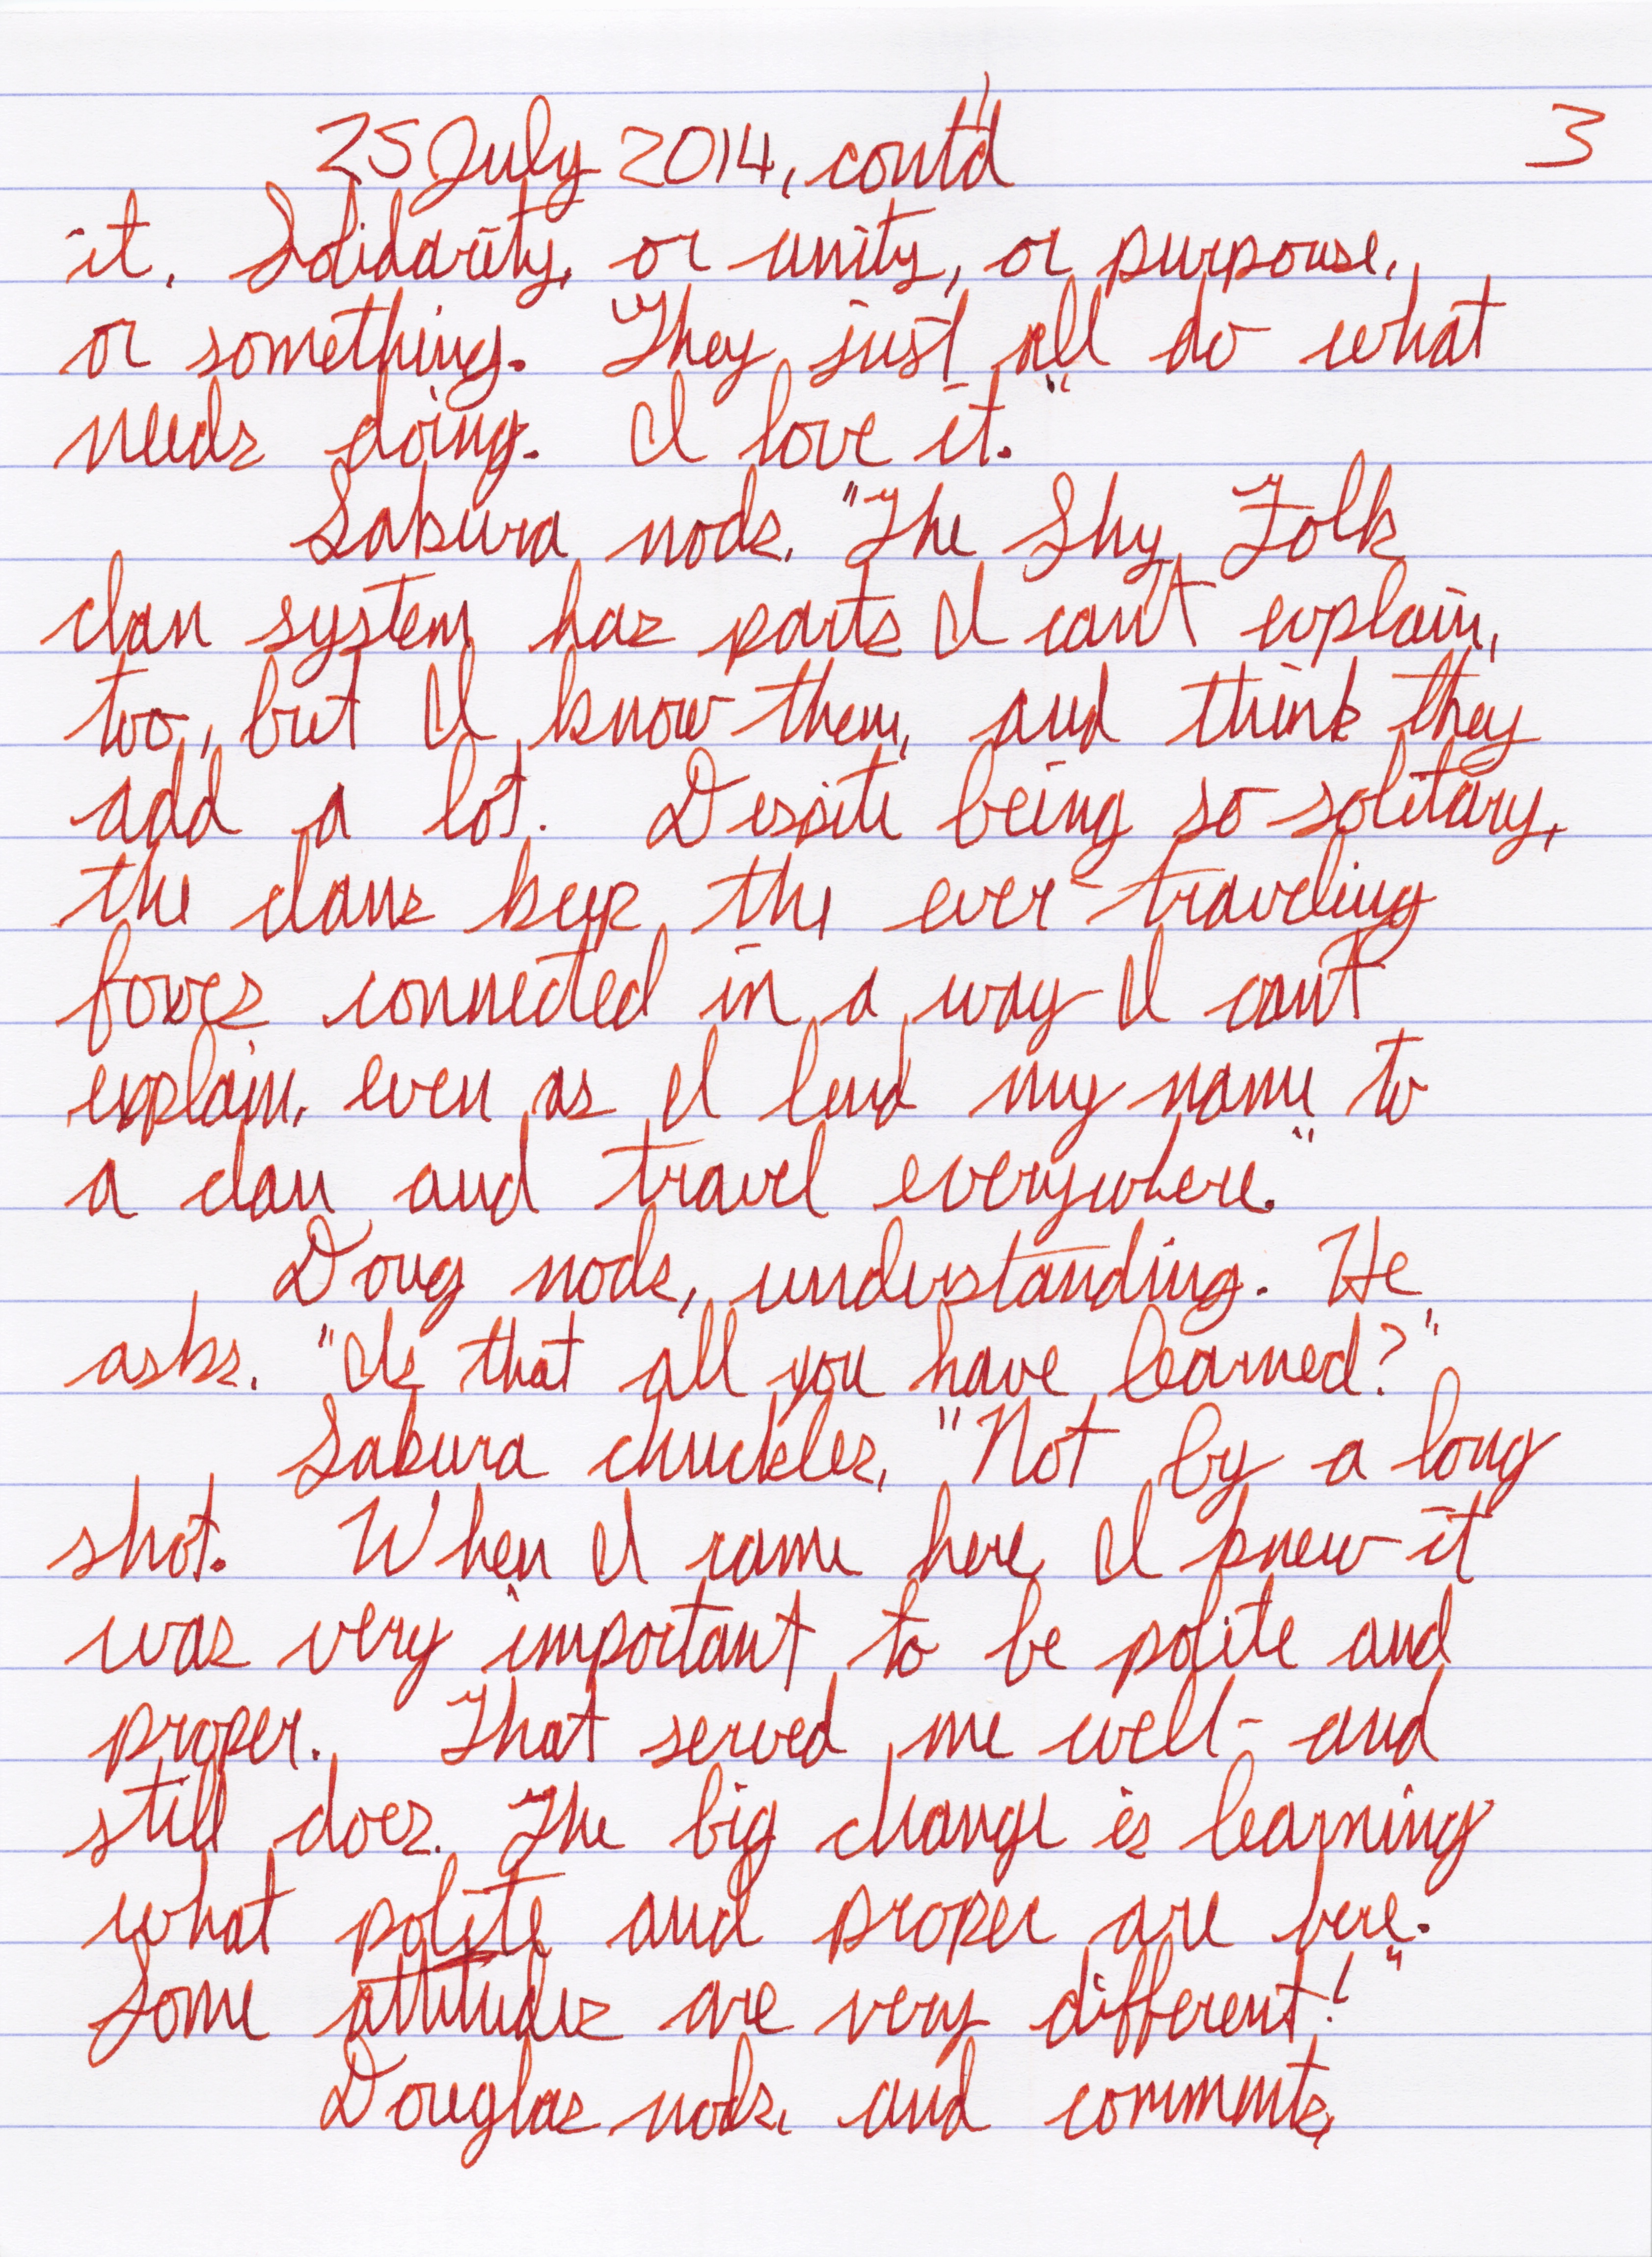 25 July 2014, cont'd 3
it. Solidarity, or unity, or purpouse,
or something. They just all do what
needs doing. I love it."
Sakura nods. "The Shy Folk
clan system has parts I can't explain,
too, but I know them, and think they
add a lot. Despite being so solitary,
the clans keep the ever-traveling
foxes connected in a way I can't
explain, even as I lend my name to
a clan and travel everywhere."
Doug nods, understanding. He
asks. "Is that all you have learned?"
Sakura chuckles, "Not by a long
shot. When I came here I knew it
was very important to be polite and
proper. That served me well - and
still does. The big change is learning
what polite and proper are here.
Some attitudes are very different!"
Douglas nods, and comments,